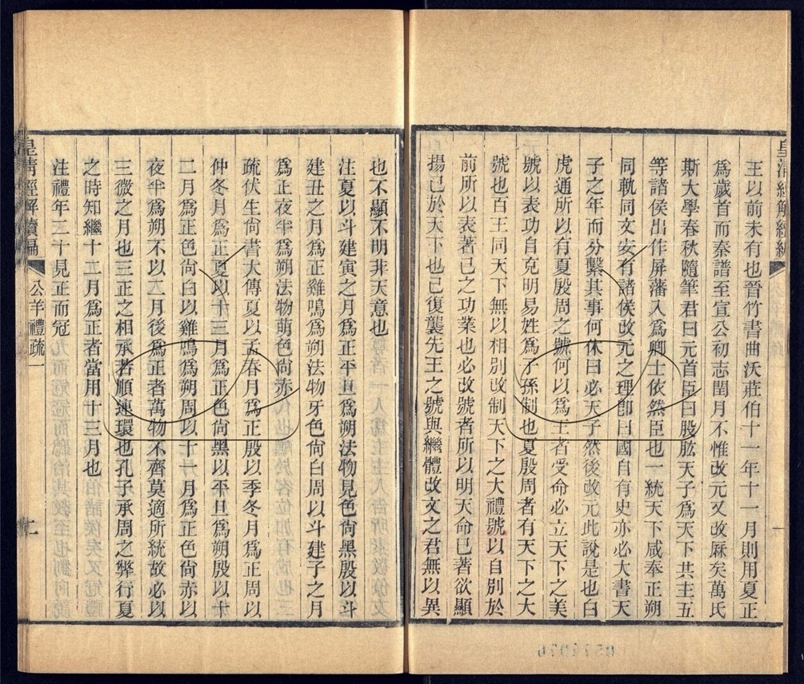 王以前未有也晉竹書曲沃莊伯十一年十一月則用夏正
爲歲首而秦譜至宣公初志閏月不惟改元又改厤矣萬氏
斯大學春秋隨筆君曰元首臣曰股肱天子爲天下共主五
等諸侯出作屏藩入爲卿士依然臣也一統天下咸奉正朔
同軌同文安有諸侯改元之理卽曰國自有史亦必大書天
子之年而分繫其事何休曰必天子然後改元此說是也白
虎通所以有夏殷周之號何以爲王者受命必立天下之美
號以表功自克明易姓爲子孫制也夏殷周者有天下之大
號也百王同天下無以相別改制天下之大禮號以自別於
前所以表著己之功業也必改號者所以明天命已著欲顯
揚己於天下也己復襲先王之號與繼體改文之君無以異
皇清經解續編
公羊禮疏一
也不顯不明非天意也
注夏以斗建寅之月爲正平旦爲朔法物見色尙黑殷以斗
建丑之月爲正雞鳴爲朔法物牙色尙白周以斗建子之月
爲正夜半爲朔法物萌色尙赤
疏伏生尙書大傳夏以孟春月爲正殷以季冬月爲正周以
仲冬月爲正夏以十三月爲正色尙黑以平旦爲朔殷以十
二月爲正色尙白以雞鳴爲朔周以十一月爲正色尙赤以
夜半爲朔不以二月後爲正者萬物不齊莫適所統故必以
三微之月也三正之相承若順連環也孔子承周之弊行夏
之時知繼十二月爲正者當用十三月也
注禮年二十見正而冠
0574976